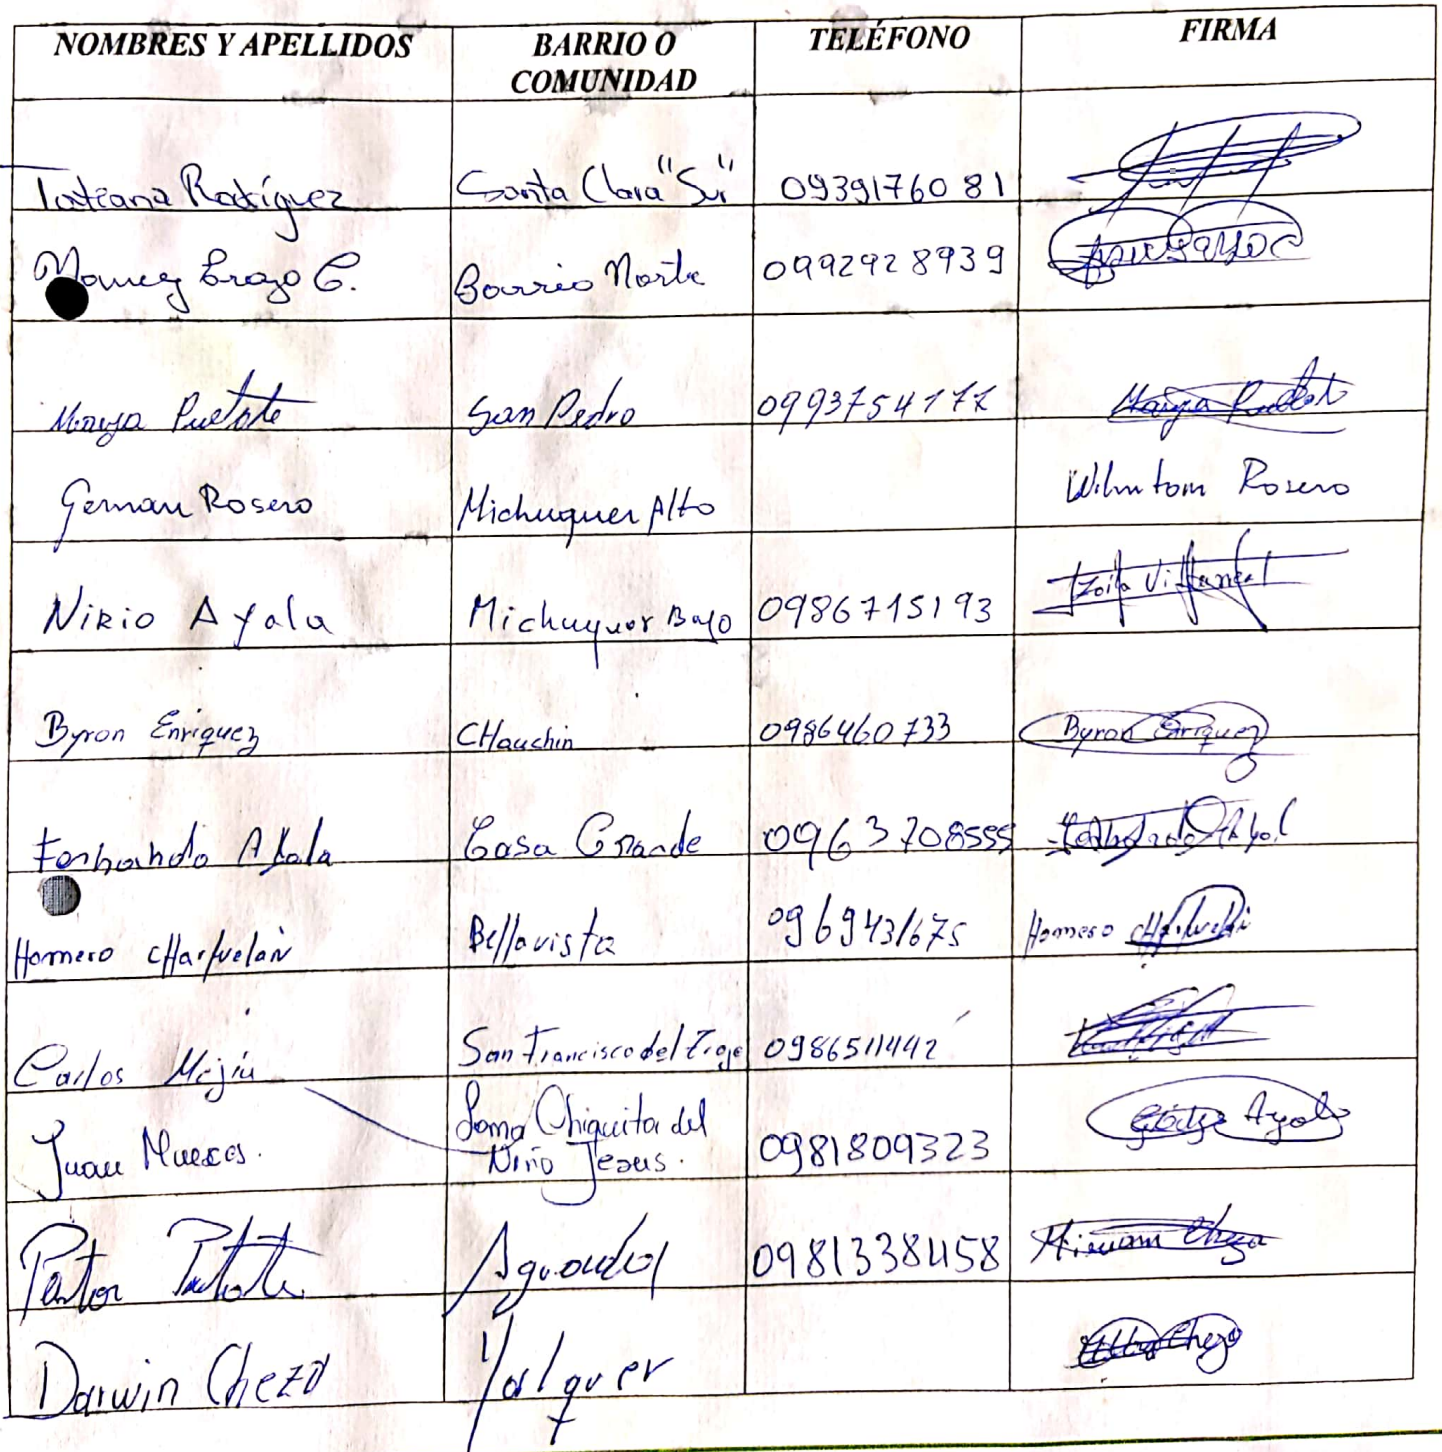 NOMBRES Y APELLIDOS BARRIO O COMUNIDAD TELÉFONO FIRMA
Tatiana Rodríguez Santa Clara "Sur" 0939176081
Erazo C. Barrio Norte 0992928939
Puetate San Pedro 0993754177
German Rosero Michuquer Alto Rosero
Nirio Ayala Michuquer Bajo 0986715193 Zoila
Byron Enriquez CHauchin 0986460733 Byron Enriquez
Fernando Ayala Casa Grande 0963708555
Homero cHarfuelán Bellavista 0969431675 Homero
Carlos Mejía San Francisco del Troje 0986511442
Juan Loma Chiquita del Niño Jesus. 0981809323 Ayala
0981338458 Miriam Cheza
Darwin Cheza Yalquer Cheza